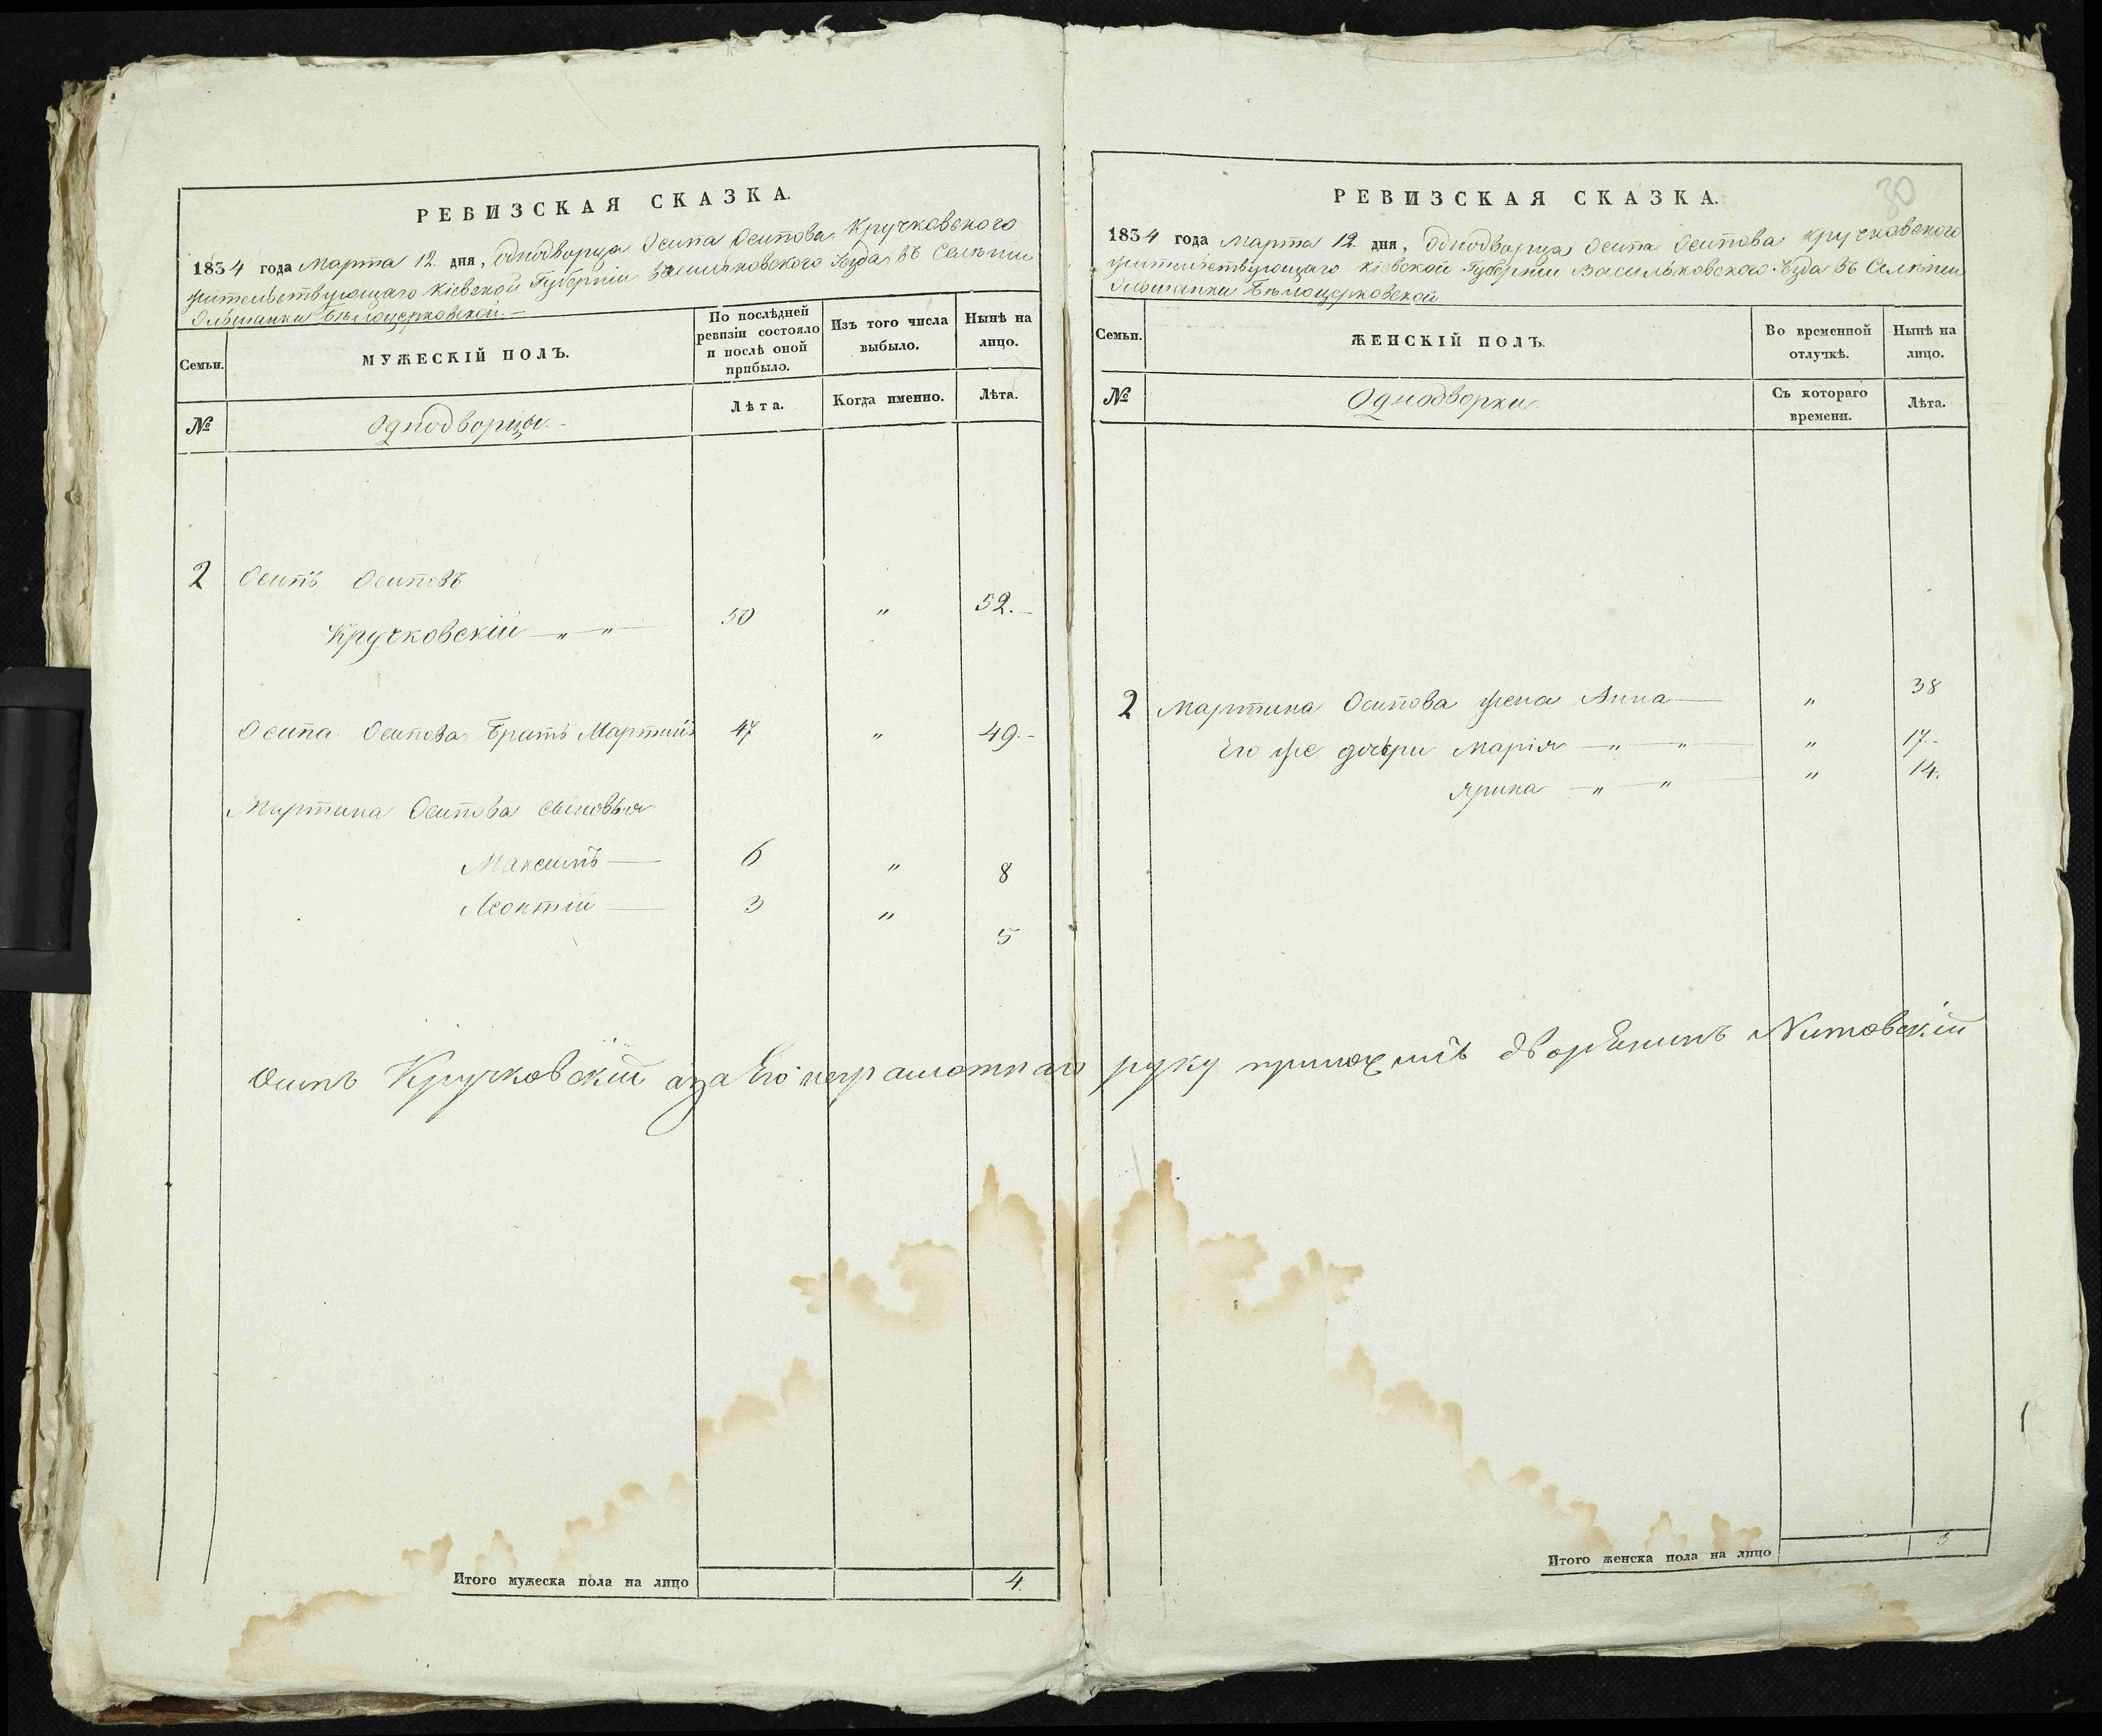 РЕВИЗСКАЯ СКАЗКА.
1834 года Марта 12. дня, Однодворца Осипа Осипова Кручковского
жительствующаго Кіевской Губерніи Васильковского Уѣзда въ Селѣніи
Ольшанки Бѣлоцерковской. –
Семьи.
МУЖЕСКІЙ ПОЛЪ.
По послѣдней
ревизіи состояло
и послѣ оной
прибыло.
Изъ того числа
выбыло.
Нынѣ на
лицо.
№
Однодворцы. –
Лѣта.
Когда именно.
Лѣта.
2 Осипъ Осиповъ
Кручковскій — „ — „ — 50 „ 52. –
Осипа Осипова Братъ Мартинъ 47 „ 49. –
Мартина Осипова сыновья
Максимъ — 6 „ 8
Леонтій — 3 „ 5
Осипъ Кручковскій а за Его неграмотнаго руку приложилъ дворянинъ
Итого мужеска пола на лицо 4.
30
РЕВИЗСКАЯ СКАЗКА.
1834 года Марта 12. дня, Однодворца Осипа Осипова Кручковского
жительствующаго Кіевской Губерніи Васильковского Уѣзда въ Селѣніи
Ольшанки Бѣлоцерковской
Семьи.
ЖЕНСКІЙ ПОЛЪ.
Во временной
отлучкѣ.
Нынѣ на
лицо.
№
Однодворки.
Съ котораго
времени.
Лѣта.
2 Мартина Осипова жена Анна — „ 38
Его же дочери Марія — „ — „ — „ 17. –
Ярина — „ — „ — „ 14.
Итого женска пола на лицо 3